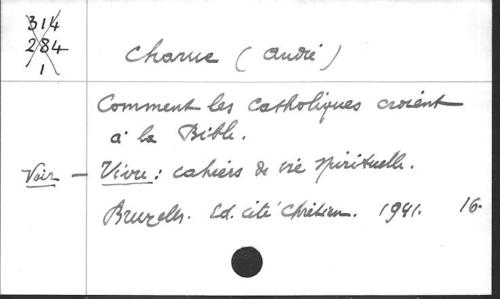 314
284
1
Charue (André)
Comment les catholiques croient
à la Bible.
Voir - Vivre : cahiers de vie spirituelle.
Bruxelles. Ed. cité Chrétien. 1941. 16.